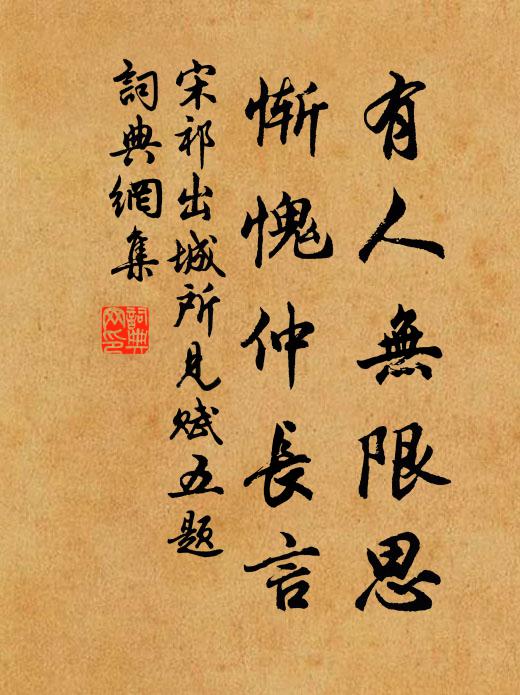 有人無限思
慚愧仲長言
宋祁出城所見賦五題
詞典網集
詞典
网印